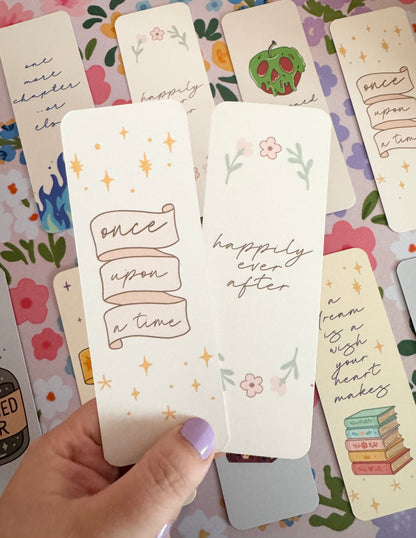 one
more
chapter
...or
happily
once
upon
a time
once
upon
a time
happily
ever
after
a
dream
is a
wish
your
heart
makes